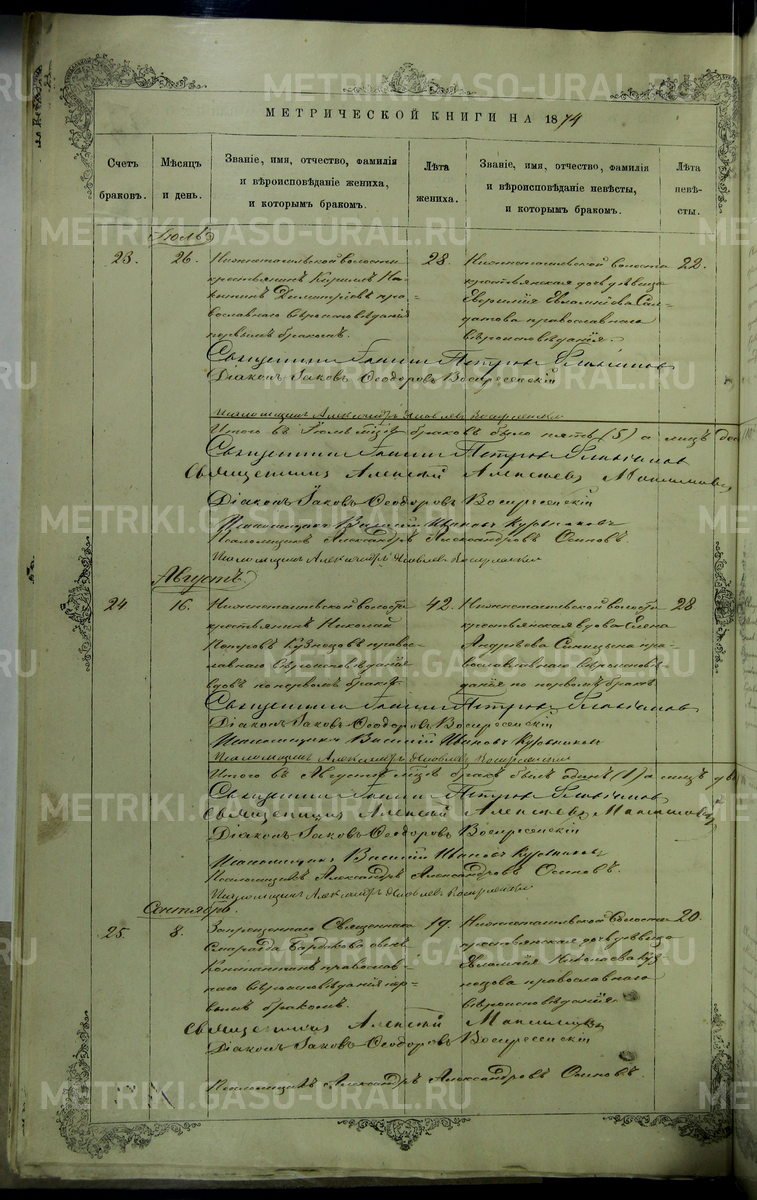 МЕТРИЧЕСКОЙ КНИГИ НА 1874
Счетъ браковъ.
Мѣсяцъ и день.
Званіе, имя, отчество, фамилія
и вѣроисповѣданіе жениха,
и которымъ бракомъ.
Лѣта жениха.
Званіе, имя, отчество, фамилія
и вѣроисповѣданіе невѣсты,
и которымъ бракомъ.
Лѣта невѣсты.
Іюль
23. 26.
Нижнетагильской волости
крестьянинъ Кириллъ Ни-
китинъ Димитріевъ пра-
вославнаго вѣроисповѣданія
первымъ бракомъ.
28.
Нижнетагильской волости
крестьянская дочь дѣвица
православнаго
вѣроисповѣданія.
22.
Священникъ Іоаннъ Петровъ
Діаконъ Іаковъ Ѳеодоровъ Воскресенскій
Псаломщикъ Александръ Яковлевъ Воскресенскій
Итого въ Іюлѣ м-цѣ браковъ было пять (5) а лицъ
Священникъ Іоаннъ Петровъ
Священникъ Алексій Алексѣевъ
Діаконъ Іаковъ Ѳеодоровъ Воскресенскій
Псаломщикъ Василій Ивановъ
Псаломщикъ Александръ Александровъ Осиповъ.
Псаломщикъ Александръ Яковлевъ Воскресенскій
Августъ.
24 16.
Нижнетагильской волости
крестьянинъ Николай
Петровъ Кузнецовъ правос-
лавнаго вѣроисповѣданія
вдовъ по первомъ бракѣ.
42.
Нижнетагильской волости
крестьянская вдова Елена
Андреева Синицына пра-
вославнаго вѣроисповѣ-
данія по первомъ бракѣ
28
Священникъ Іоаннъ Петровъ
Діаконъ Іаковъ Ѳеодоровъ Воскресенскій
Псаломщикъ Василій Ивановъ
Псаломщикъ Александръ Яковлевъ Воскресенскій
Итого въ Августѣ м-цѣ бракъ былъ одинъ (1) а лицъ
Священникъ Іоаннъ Петровъ
Священникъ Алексій Алексѣевъ
Діаконъ Іаковъ Ѳеодоровъ Воскресенскій
Псаломщикъ Василій Ивановъ
Псаломщикъ Александръ Александровъ Осиповъ.
Псаломщикъ Александръ Яковлевъ Воскресенскій
Сентябрь.
25. 8.
Запрещеннаго Священника
Смарагда Бардакова сынъ
Константинъ православ-
наго вѣроисповѣданія пер-
вымъ бракомъ.
19.
Нижнетагильской волости
крестьянская дочь дѣвица
Евлампія Николаева Куз-
нецова православнаго
вѣроисповѣданія
20.
Священникъ Алексій
Діаконъ Іаковъ Ѳеодоровъ Воскресенскій
Псаломщикъ Александръ Александровъ Осиповъ.
METRIKI.GASO-URAL.RU